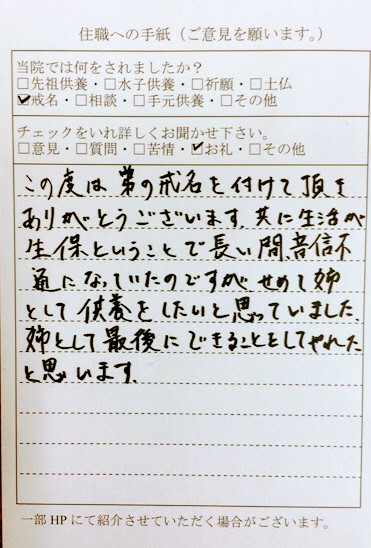 住職への手紙（ご意見を願います。）
当院では何をされましたか？
□先祖供養・□水子供養・□祈願・□土仏
☑戒名・□相談・□手元供養・□その他
チェックをいれ詳しくお聞かせ下さい。
□意見・□質問・□苦情・☑お礼・□その他
この度は弟の戒名を付けて頂き
ありがとうございます。共に生活が
生保ということで長い間、音信不
通になっていたのですがせめて姉
として供養をしたいと思っていました。
姉として最後にできることをしてやれた
と思います。
一部HPにて紹介させていただく場合がございます。